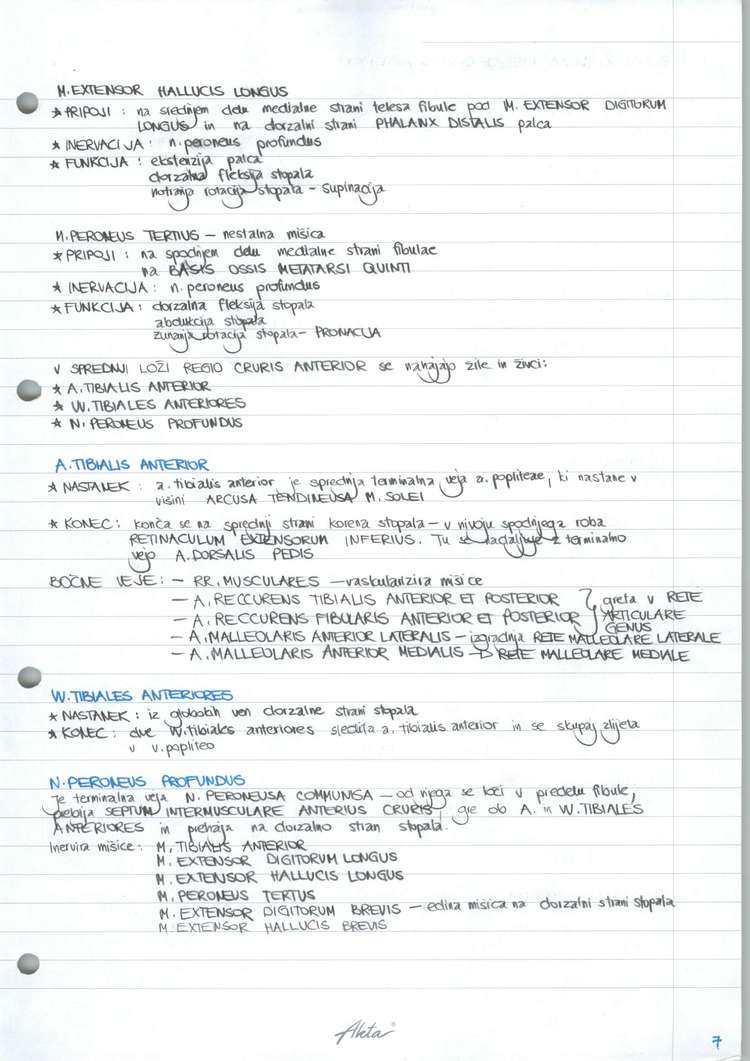 M. EXTENSOR HALLUCIS LONGUS
* PRIPOJI : na srednjem delu medialne strani telesa fibule pod M. EXTENSOR DIGITORUM
LONGUS in na dorzalni strani PHALANX DISTALIS palca
* INERVACIJA : n. peroneus profundus
* FUNKCIJA : ekstenzija palca
dorzalna fleksija stopala
notranja rotacija stopala – supinacija
M. PERONEUS TERTIUS – nestalna mišica
* PRIPOJI : na spodnjem delu medialne strani fibulae
na BASIS OSSIS METATARSI QUINTI
* INERVACIJA : n. peroneus profundus
* FUNKCIJA : dorzalna fleksija stopala
abdukcija stopala
zunanja rotacija stopala – PRONACIJA
V SPREDNJI LOŽI REGIO CRURIS ANTERIOR se nahajajo žile in živci:
* A. TIBIALIS ANTERIOR
* VV. TIBIALES ANTERIORES
* N. PERONEUS PROFUNDUS
A. TIBIALIS ANTERIOR
* NASTANEK : a. tibialis anterior je sprednja terminalna veja a. popliteae, ki nastane v
višini ARCUSA TENDINEUSA M. SOLEI
* KONEC : konča se na sprednji strani korena stopala – v nivoju spodnjega roba
RETINACULUM EXTENSORUM INFERIUS. Tu se nadaljuje z terminalno
vejo A. DORSALIS PEDIS
BOČNE VEJE : – RR. MUSCULARES – vaskularizira mišice
– A. RECCURENS TIBIALIS ANTERIOR ET POSTERIOR } greta v RETE
– A. RECCURENS FIBULARIS ANTERIOR ET POSTERIOR } ARTICULARE
GENUS
– A. MALLEOLARIS ANTERIOR LATERALIS – izgradnja RETE MALLEOLARE LATERALE
– A. MALLEOLARIS ANTERIOR MEDIALIS → RETE MALLEOLARE MEDIALE
VV. TIBIALES ANTERIORES
* NASTANEK : iz globokih ven dorzalne strani stopala
* KONEC : dve VV. tibiales anteriores sledita a. tibialis anterior in se skupaj zlijeta
v v. popliteo
N. PERONEUS PROFUNDUS
Je terminalna veja N. PERONEUSA COMMUNISA – od njega se loči v predelu fibule,
prebija SEPTUM INTERMUSCULARE ANTERIUS CRURIS, gre ob A. in VV. TIBIALES
ANTERIORES in prehaja na dorzalno stran stopala.
Inervira mišice : M. TIBIALIS ANTERIOR
M. EXTENSOR DIGITORUM LONGUS
M. EXTENSOR HALLUCIS LONGUS
M. PERONEUS TERTUS
M. EXTENSOR DIGITORUM BREVIS – edina mišica na dorzalni strani stopala
M. EXTENSOR HALLUCIS BREVIS
Akta®
7